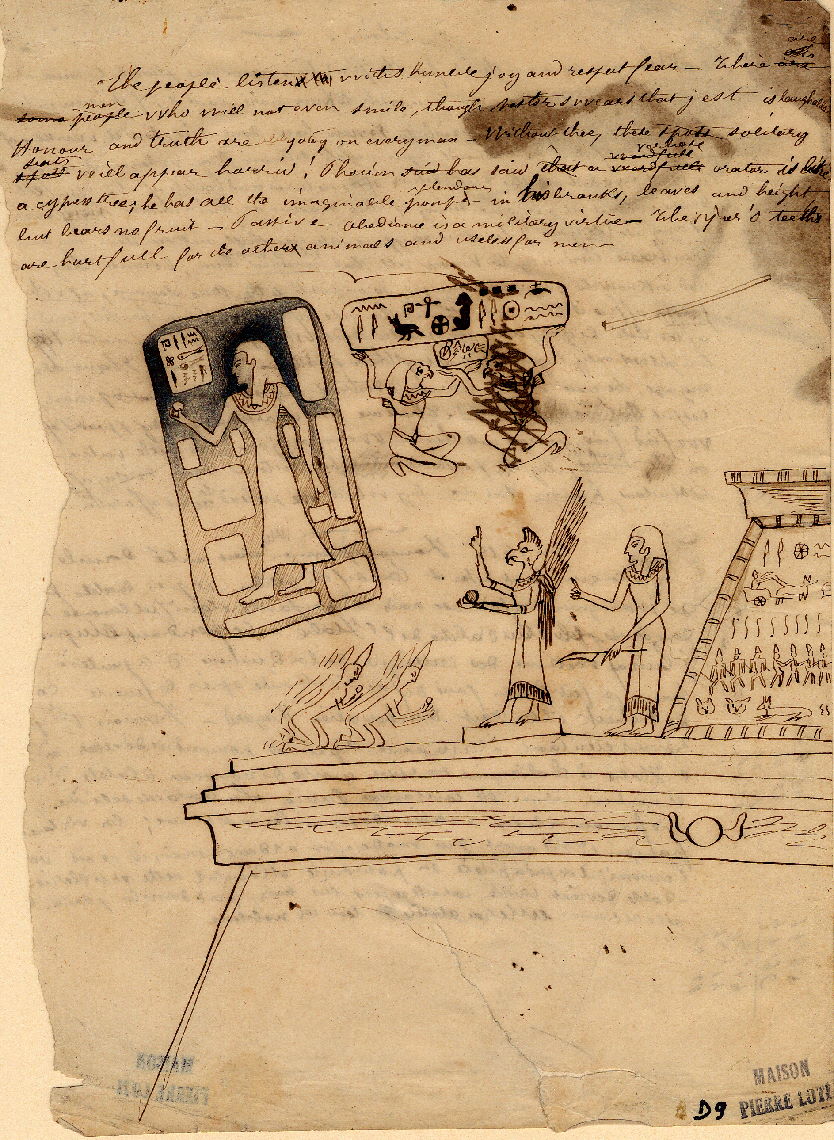 The people listen with humble joy and respect fear — There are
some people men who will not even smile, though nestor swears that jest is laughable
Honour and truth are on every man — Without thee, these spots solitary
spots will appear horrid! Phocion said has saw that a orator is like
a cypress tree, he has all the imaginable pomp splendour in his branks, leaves and height
but bears no fruit — Passive obedience is a military virtue — The viper's teeths
are hurtfull for the others animals and useless for men —
MAISON
PIERRE LOTI
D9